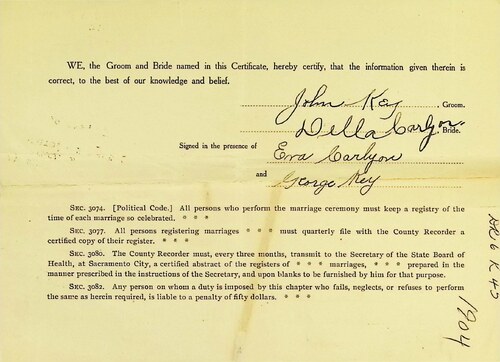 WE, the Groom and Bride named in this Certificate, hereby certify, that the information given therein is
correct, to the best of our knowledge and belief.
John Key, Groom.
Della Carlyon, Bride.
Signed in the presence of
Eva Carlyon
and
George Key
SEC. 3074. [Political Code.] All persons who perform the marriage ceremony must keep a registry of the
time of each marriage so celebrated. * * *
SEC. 3077. All persons registering marriages * * * must quarterly file with the County Recorder
a certified copy of their register. * * *
SEC. 3080. The County Recorder must, every three months, transmit to the Secretary of the State Board of
Health, at Sacramento City, a certified abstract of the registers of * * * marriages, * * * prepared in
the manner prescribed in the instructions of the Secretary, and upon blanks to be furnished by him for that purpose.
SEC. 3082. Any person on whom a duty is imposed by this chapter who fails, neglects, or refuses to perform
the same as herein required, is liable to a penalty of fifty dollars. * * *
1904